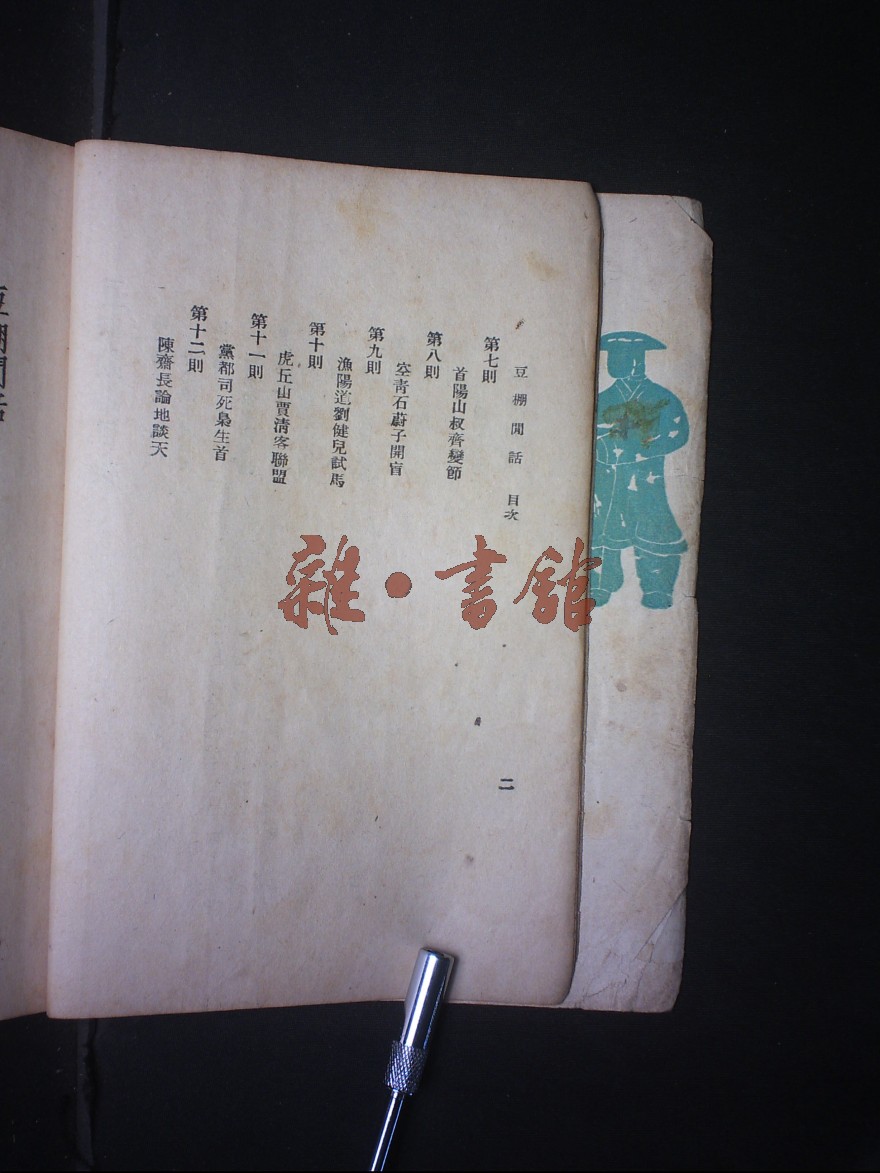 豆棚閒話 目次
第七則
首陽山叔齊變節
第八則
空青石蔚子開盲
第九則
漁陽道劉健兒試馬
第十則
虎丘山賈清客聯盟
第十一則
黨都司死梟生首
第十二則
陳齋長論地談天
二
雜·書館